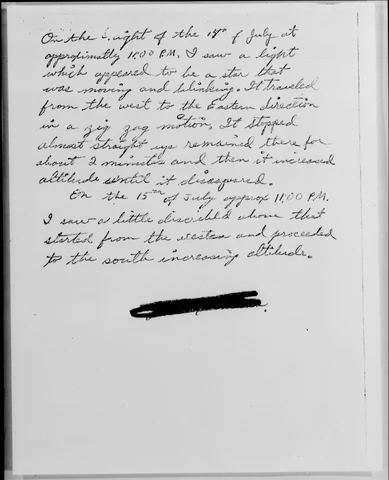 On the night of the 14th of July at
approximatly 11:00 P.M. I saw a light
which appeared to be a star that
was moving and blinking. It traveled
from the west to the Eastern direction
in a zig zag motion. It stopped
almost straight up remained there for
about 2 minutes and then it increased
altitude until it disappeared.
On the 15th of July approx 11:00 P.M.
I saw a little discribed above that
started from the western and proceeded
to the south increasing altitude.